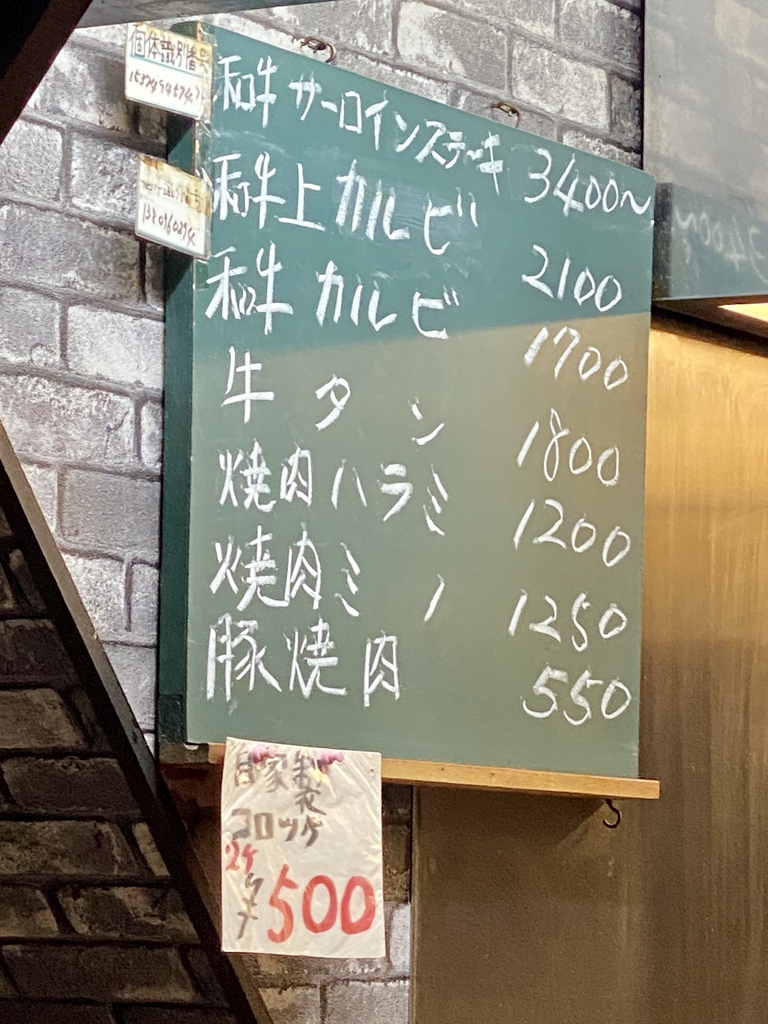 個体識別番号
和牛サーロインステーキ 3400~
和牛上カルビ 2100
和牛カルビ 1700
牛タン 1800
焼肉ハラミ 1200
焼肉ミノ 1250
豚焼肉 550
自家製
コロッケ
2ケ
500